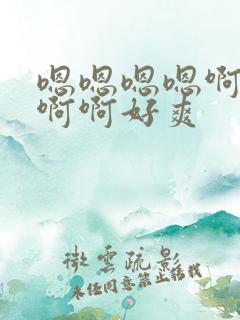 嗯嗯嗯嗯啊
啊啊好爽
微云疏影
未经同意禁止转载